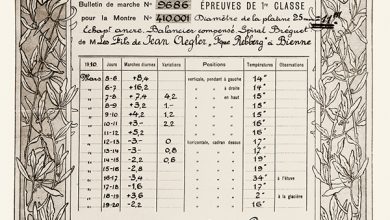 Bulletin de marche No 9686 ÉPREUVES DE 1re CLASSE
pour la Montre No 410.001 Diamètre de la platine 25 = 11'''
Echapt ancre. Balancier compensé. Spiral Breguet
de M Les Fils de Jean Aegler, Fque Rebberg à Bienne
1910. Jours Marches diurnes Variations Positions Températures Observations
Mars 5-6 +8,4 verticale, pendant à gauche 14°
" 6-7 +16,2 " " à droite 14°
" 7-8 +7,4 4,2 " " en haut 15°
" 8-9 +3,2 1.- " " 15°
" 9-10 +4,2 1,2 " " 15°
" 10-11 +3.- 2,2 " " 16°
" 11-12 +5,2 " " 16°
" 12-13 -3.- 0 horizontale, cadran dessous 17°
" 13-14 -3.- 0,8 " " 17°
" 14-15 -2,2 0,6 " " 18°
" 15-16 -2,8 " " 18°
" 16-17 -3,4 " " 34° à l'étuve
" 17-18 -1,6 " " 17°
" 18-19 -3,6 " " 2° à la glacière
" 19-20 -2,2 " " 16°